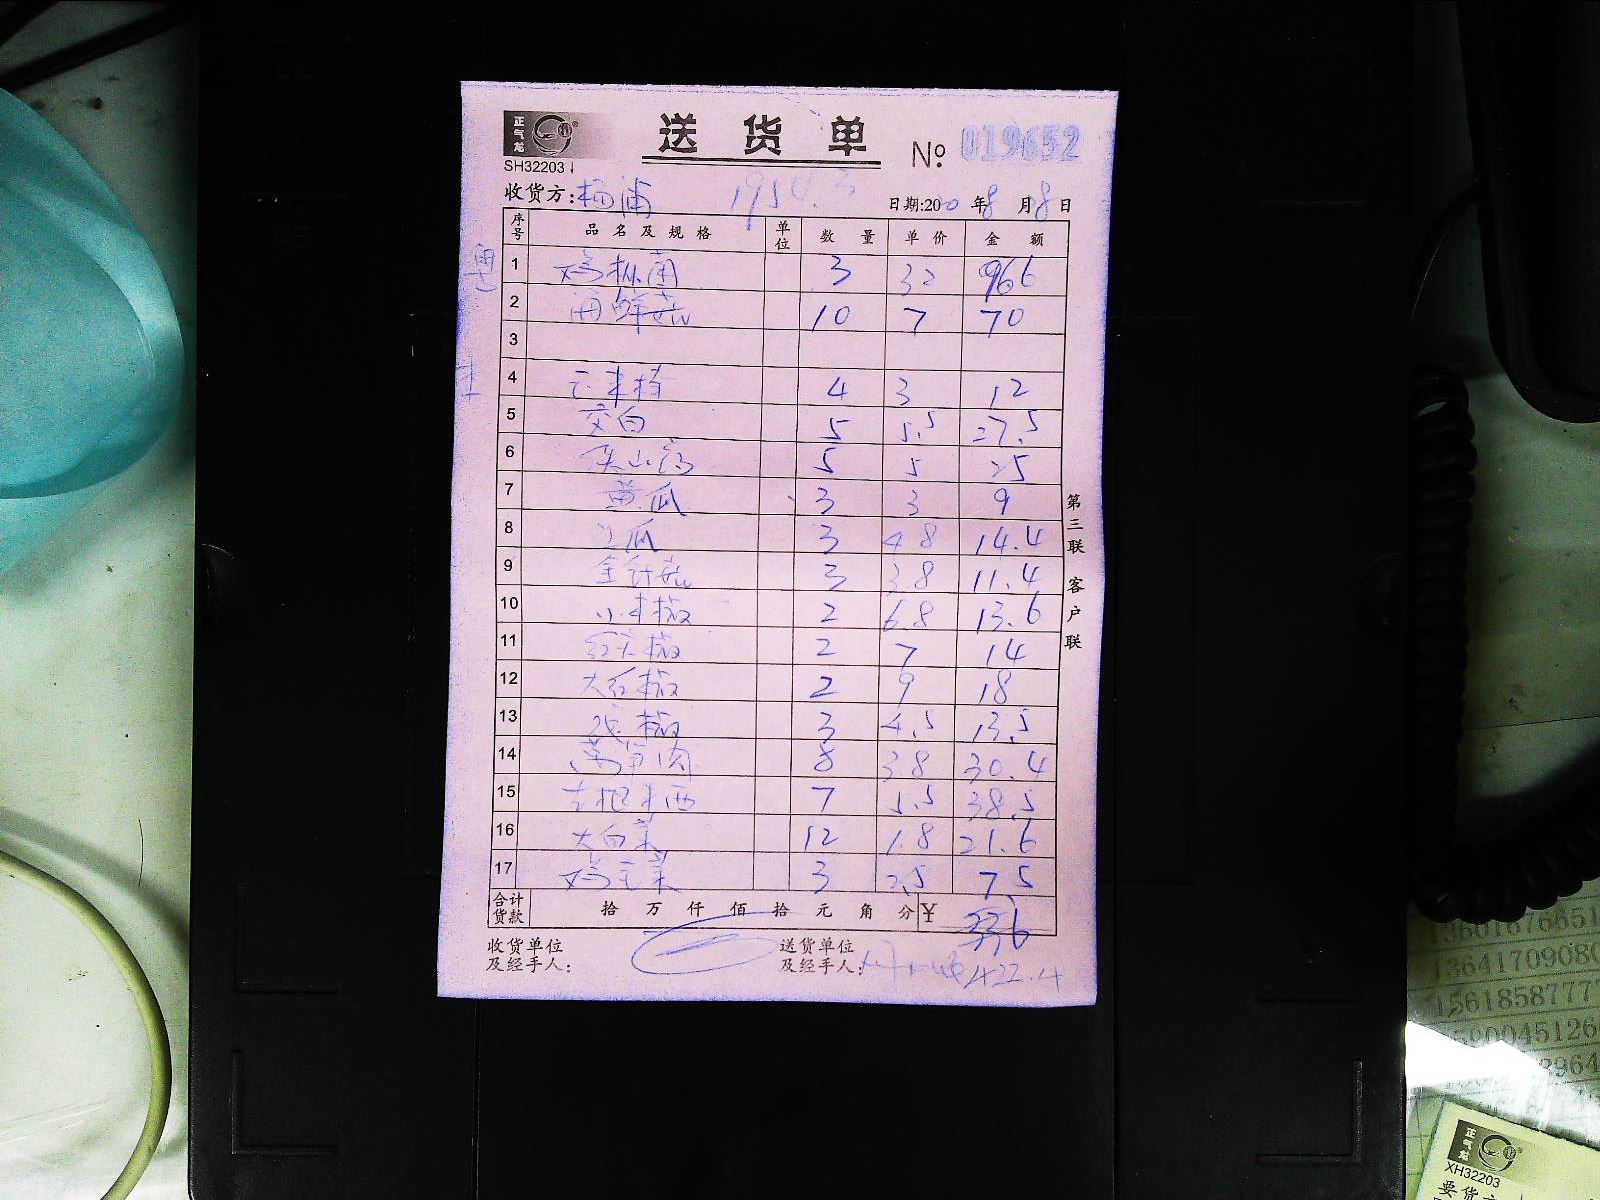 正气龙
送货单 № 019652
SH32203
收货方:杨浦 1954.3 日期:20 年8月8日
序号 品名及规格 单位 数量 单价 金额
1 鸡枞菌 3 32 966
2 海鲜菇 10 7 70
3
4 玉米棒 4 3 12
5 交白 5 5.5 27.5
6 铁山药 5 5 25
7 黄瓜 3 3 9
8 瓜 3 4.8 14.4
9 金针菇 3 3.8 11.4
10 小米椒 2 6.8 13.6
11 红尖椒 2 7 14
12 大红椒 2 9 18
13 椒 3 4.5 13.5
14 莴笋肉 8 3.8 30.4
15 杭 7 5.5 38.5
16 大白菜 12 1.8 21.6
17 鸡毛菜 3 2.5 7.5
合计货款 拾万仟佰拾元角分 ¥ 336
收货单位及经手人: 送货单位及经手人: 422.4
第三联 客户联
13601676651
1364170908
1561858777
580045126
8964
正气龙
XH32203
要货